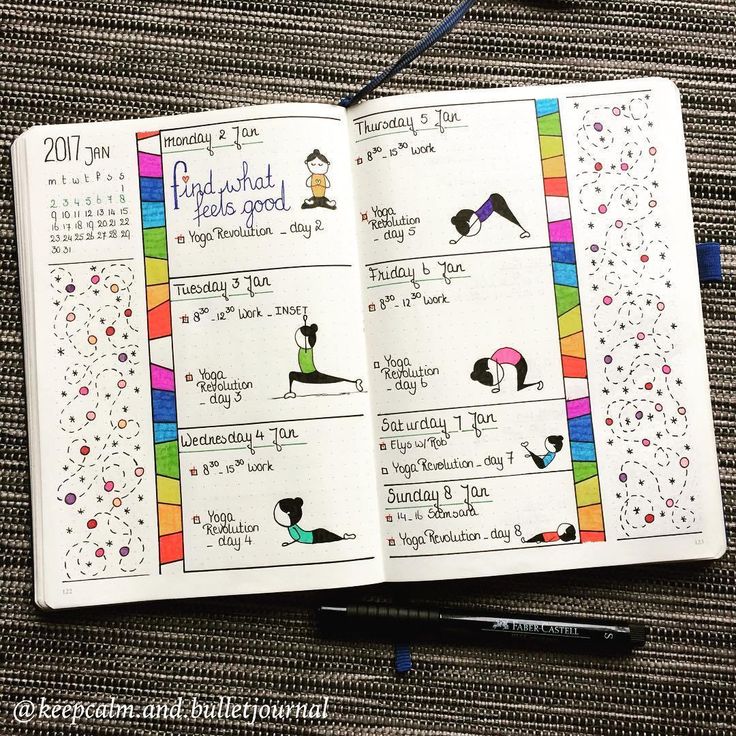 2017 JAN
m t w t f s s
1
2 3 4 5 6 7 8
9 10 11 12 13 14 15
16 17 18 19 20 21 22
23 24 25 26 27 28 29
30 31
Monday 2 Jan
find what
feels good
Yoga Revolution - day 2
Tuesday 3 Jan
8³⁰ - 12³⁰ Work - INSET
Yoga
Revolution
- day 3
Wednesday 4 Jan
8³⁰ - 15³⁰ Work
Yoga
Revolution
- day 4
122
Thursday 5 Jan
8³⁰ - 15³⁰ Work
Yoga
Revolution
- day 5
Friday 6 Jan
8³⁰ - 12³⁰ Work
Yoga
Revolution
- day 6
Saturday 7 Jan
Elys w/ Rob
Yoga Revolution - day 7
Sunday 8 Jan
14 - 16 Samsara
Yoga Revolution - day 8
123
FABER-CASTELL
S
@keepcalm.and.bulletjournal